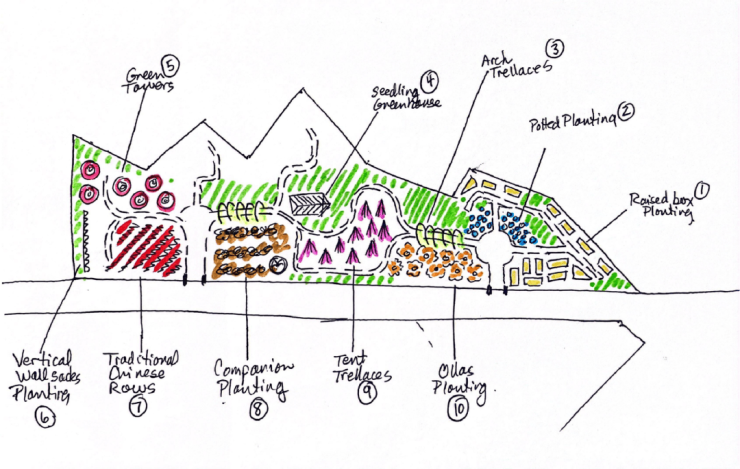 Green ⑤
Towers
Seedling ④
Greenhouse
Arch ③
Trellaces
Potted Planting ②
Raised box ①
Planting
Vertical
Wall sacks
Planting
⑥
Traditional
Chinese
Rows
⑦
Companion
Planting
⑧
Tent
Trellaces
⑨
Ollas
Planting.
⑩